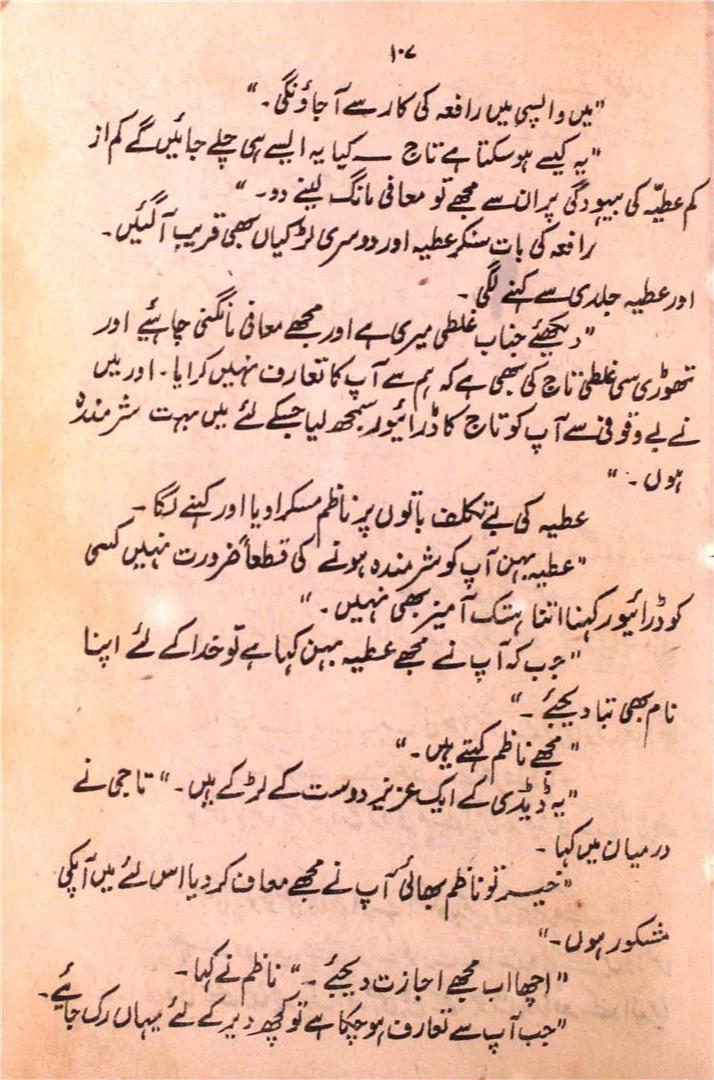 ۱۰۷
"میں واپسی میں رافعہ کی کار سے آ جاؤنگی۔"
"یہ کیسے ہو سکتا ہے تاج ــ کیا یہ ایسے ہی چلے جائیں گے کم از
کم عطیّہ کی بیہودگی پر ان سے مجھے تو معافی مانگ لینے دو۔"
رافعہ کی بات سنکر عطیہ اور دوسری لڑکیاں بھی قریب آ گئیں۔
اور عطیہ جلدی سے کہنے لگی۔
"دیکھئے جناب غلطی میری ہے اور مجھے معافی مانگنی چاہئیے اور
تھوڑی سی غلطی تاج کی بھی ہے کہ ہم سے آپ کا تعارف نہیں کرایا۔ اور میں
نے بے وقوفی سے آپ کو تاج کا ڈرائیور سمجھ لیا جسکے لئے میں بہت شرمندہ
ہوں۔"
عطیہ کی بے تکلف باتوں پر ناظم مسکرا دیا اور کہنے لگا۔
"عطیہ بہن آپ کو شرمندہ ہونے کی قطعاً ضرورت نہیں کسی
کو ڈرائیور کہنا اتنا ہتک آمیز بھی نہیں۔"
"جب کہ آپ نے مجھے عطیہ بہن کہا ہے تو خدا کے لئے اپنا
نام بھی بتا دیجئے۔"
"مجھے ناظم کہتے ہیں۔"
"یہ ڈیڈی کے ایک عزیز دوست کے لڑکے ہیں۔" تاجی نے
درمیان میں کہا۔
"خیر تو ناظم بھائی آپ نے مجھے معاف کر دیا اس لئے میں آپکی
مشکور ہوں۔"
"اچھا اب مجھے اجازت دیجئے۔" ناظم نے کہا۔
"جب آپ سے تعارف ہو چکا ہے تو کچھ دیر کے لئے یہاں رک جائیے۔